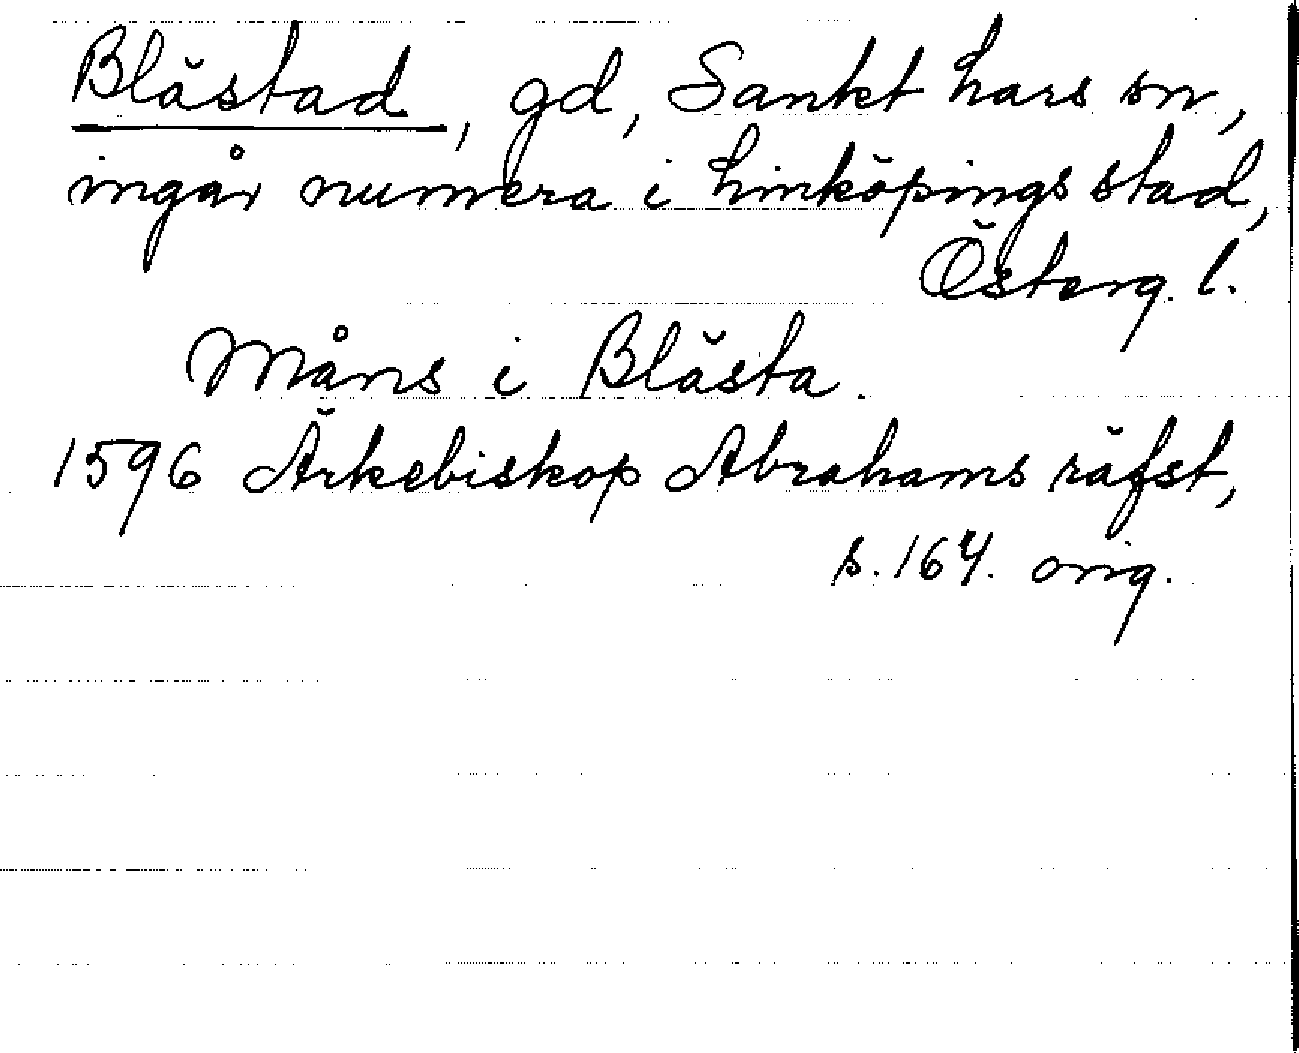 Blästad, gd, Sankt Lars sn,
ingår numera i Linköpings stad,
Österg. l.
Måns i Blästa.
1596 Ärkebiskop Abrahams räfst,
s. 164. orig.